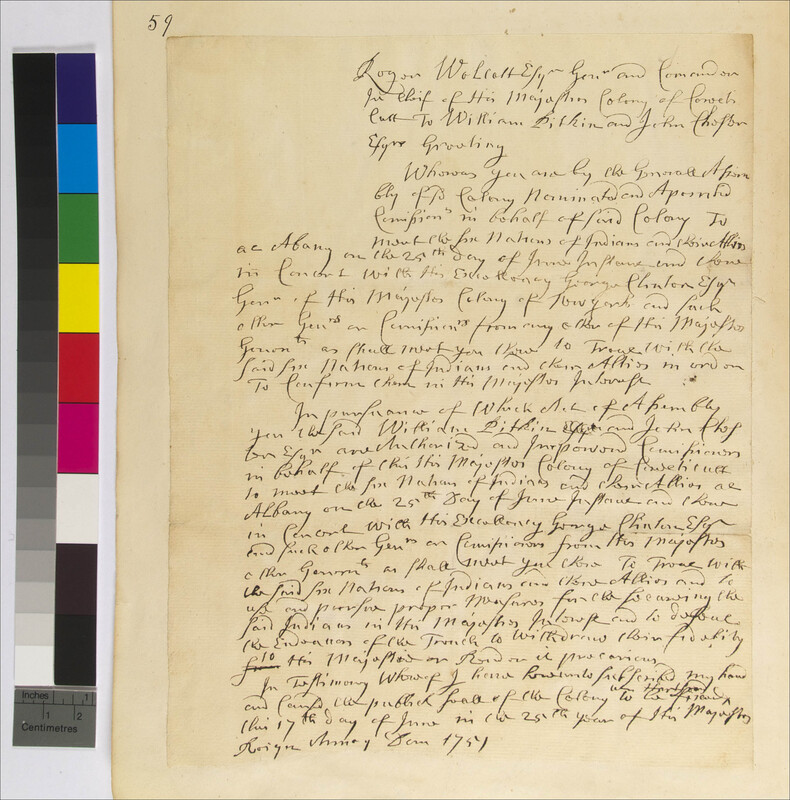 59
Roger Wolcott Esqr Govr and Comander
In Cheif of His Majesties Colony of Conecti
cutt To William Pitkin and John Chester
Esqrs Greeting
Whereas you are by the Generall Assem
bly of sd Colony Nominated and Apointed
Comissionrs in behalf of said Colony To
meet the six Nations of Indians and their Allies
at Albany on the 25th Day of June Instant and there
in Concert with His Excellency George Clinton Esqr
Govr of His Majesties Colony of New york and such
other Govrs or Comissionrs from any other of His Majesties
Governts as shall meet you there to Treat with the
said six Nations of Indians and their Allies in order
To Confirm them in His Majesties Interest
In pursuance of which Act of Assembly
you the said William Pitkin and John Ches
ter Esqrs are Authorized and Impowered Comissioners
in behalf of this His Majesties Colony of Conecticutt
to meet the six Nations of Indians and their Allies at
Albany on the 25th Day of June Instant and there
in Concert with His Excellency George Clinton Esqr
and such other Govrs or Comissioners from His Majesties
other Governts as shall meet you there To Treat with
the said six Nations of Indians and their Allies and to
use and pursue proper Measures for the securing the
said Indians in His Majesties Interest and to defeat
the Endeavors of the French to withdraw their fidelity
to His Majestie or Render it precarious
In Testimony Whereof I have hereunto subscribed my hand
and Caused the publick seale of the Colony to be
this 17th day of June in the 25th year of His Majesties
Reign Annoq Dom 1751
Inches
1
1
2
Centimetres